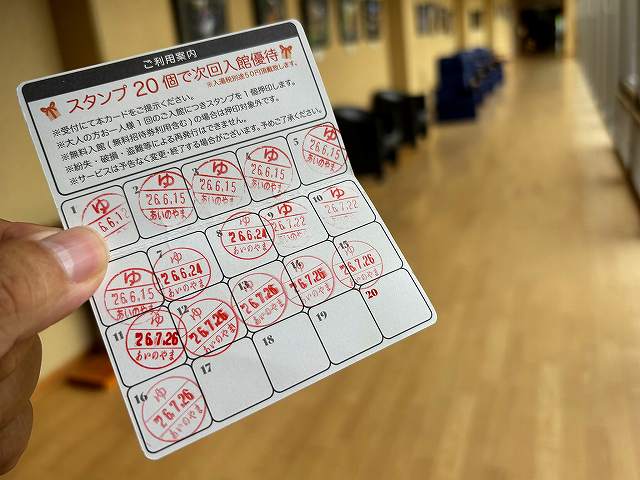 ご利用案内
スタンプ 20 個で次回入館優待
※入湯税別途50円頂戴致します。
※受付にて本カードをご提示ください。
※大人の方お一人様1回のご入館につきスタンプを1個押印します。
※無料入館(無料招待券利用含む)の場合は押印対象外です。
※紛失・破損・盗難等による再発行はできません。
※サービスは予告なく変更・終了する場合がございます。予めご了承ください。
1 ゆ
2 ゆ '26.6.15 あいのやま
3 ゆ '26.6.15 あいのやま
4 ゆ '26.6.15 あいのやま
5 ゆ '26.6.15 あいのやま
ゆ '26.6.15 あいのやま
7 ゆ '26.6.24 あいのやま
8 ゆ '26.6.24 あいのやま
9 ゆ '26.7.22
10 ゆ '26.7.22
11 ゆ '26.7.26 あいのやま
12 ゆ '26.7.26 あいのやま
13 ゆ '26.7.26 あいのやま
14 ゆ '26.7.26 あいのやま
15 ゆ '26.7.26 あいのやま
16 ゆ '26.7.26 あいのやま
17
18
19
20